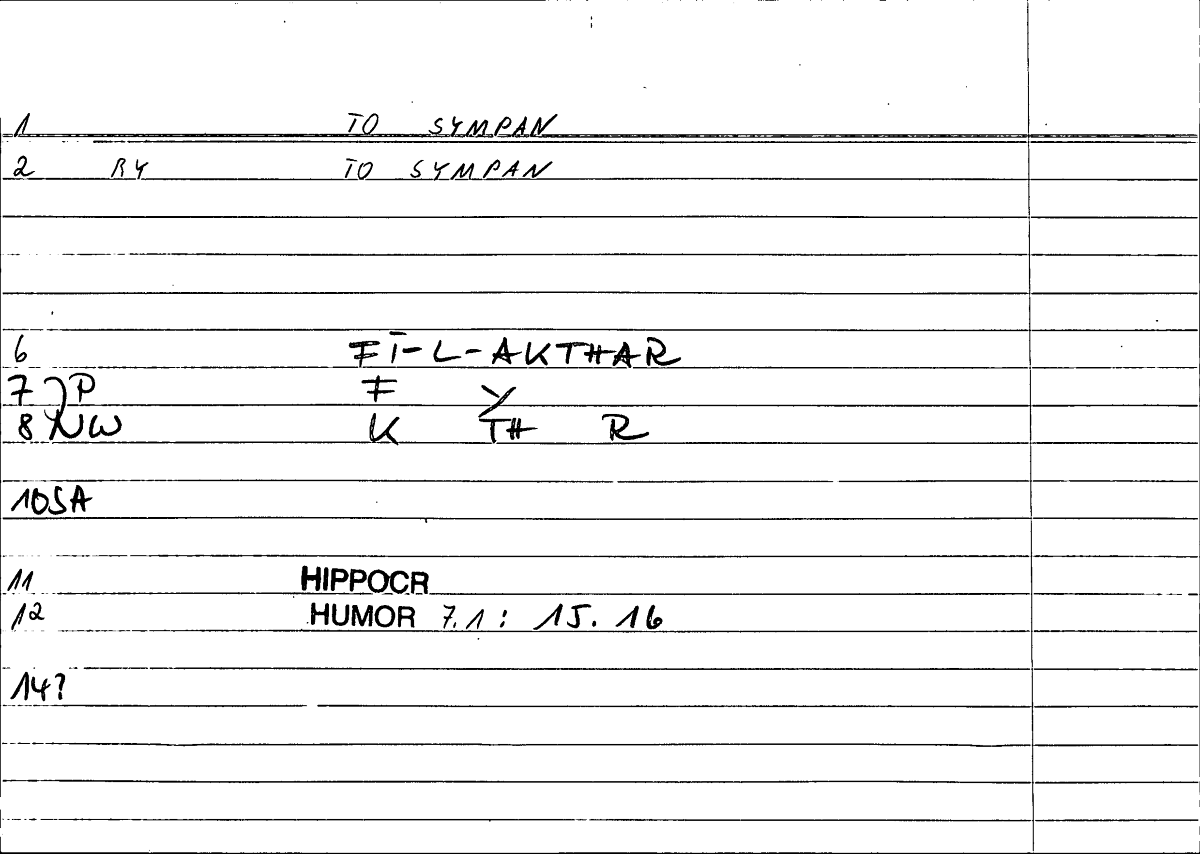 1 TO SYMPAN
2 BY TO SYMPAN
6 FĪ-L-AKTHAR
7 P F Y
8 NW K TH R
10 SA
11 HIPPOCR
12 HUMOR 7.1 : 15. 16
14?